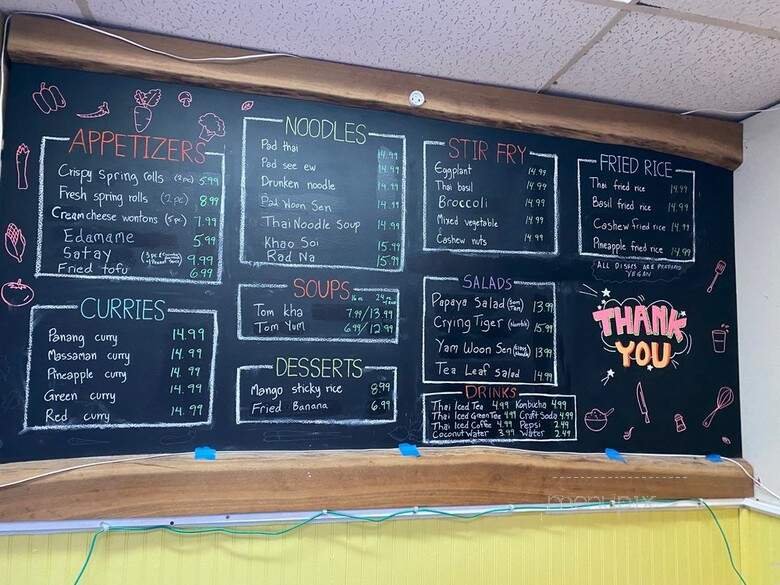 APPETIZERS
Crispy spring rolls (2pc) 5.99
Fresh spring rolls (2pc) 8.99
Cream cheese wontons (5pc) 7.99
Edamame 5.99
Satay 9.99
Fried tofu 6.99
CURRIES
Panang curry 14.99
Massaman curry 14.99
Pineapple curry 14.99
Green curry 14.99
Red curry 14.99
NOODLES
Pad thai 14.99
Pad see ew 14.99
Drunken noodle 14.99
Pad Woon Sen 14.99
Thai Noodle Soup 14.99
Khao Soi 15.99
Rad Na 15.99
SOUPS
16 oz 24 oz
Tom kha 7.99/13.99
Tom Yum 6.99/12.99
DESSERTS
Mango sticky rice 8.99
Fried Banana 6.99
STIR FRY
Eggplant 14.99
Thai basil 14.99
Broccoli 14.99
Mixed vegetable 14.99
Cashew nuts 14.99
SALADS
Papaya Salad (Som Tam) 13.99
Crying Tiger 15.99
Yam Woon Sen 13.99
Tea Leaf Salad 14.99
DRINKS
Thai Iced Tea 4.99 Kombucha 4.99
Thai Iced Green Tea 4.99 Craft Soda 4.99
Thai Iced Coffee 4.99 Pepsi 2.49
Coconut Water 3.99 Water 2.49
FRIED RICE
Thai fried rice 14.99
Basil fried rice 14.99
Cashew fried rice 14.99
Pineapple fried rice 14.99
ALL DISHES ARE
VEGAN
THANK
YOU
menupix